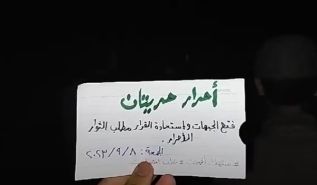 أحرار حريتان
فتح الجبهات واستعادة القرار مطلب الثوار
الأحرار.
الجمعة: ٢٠٢٣/٩/٨